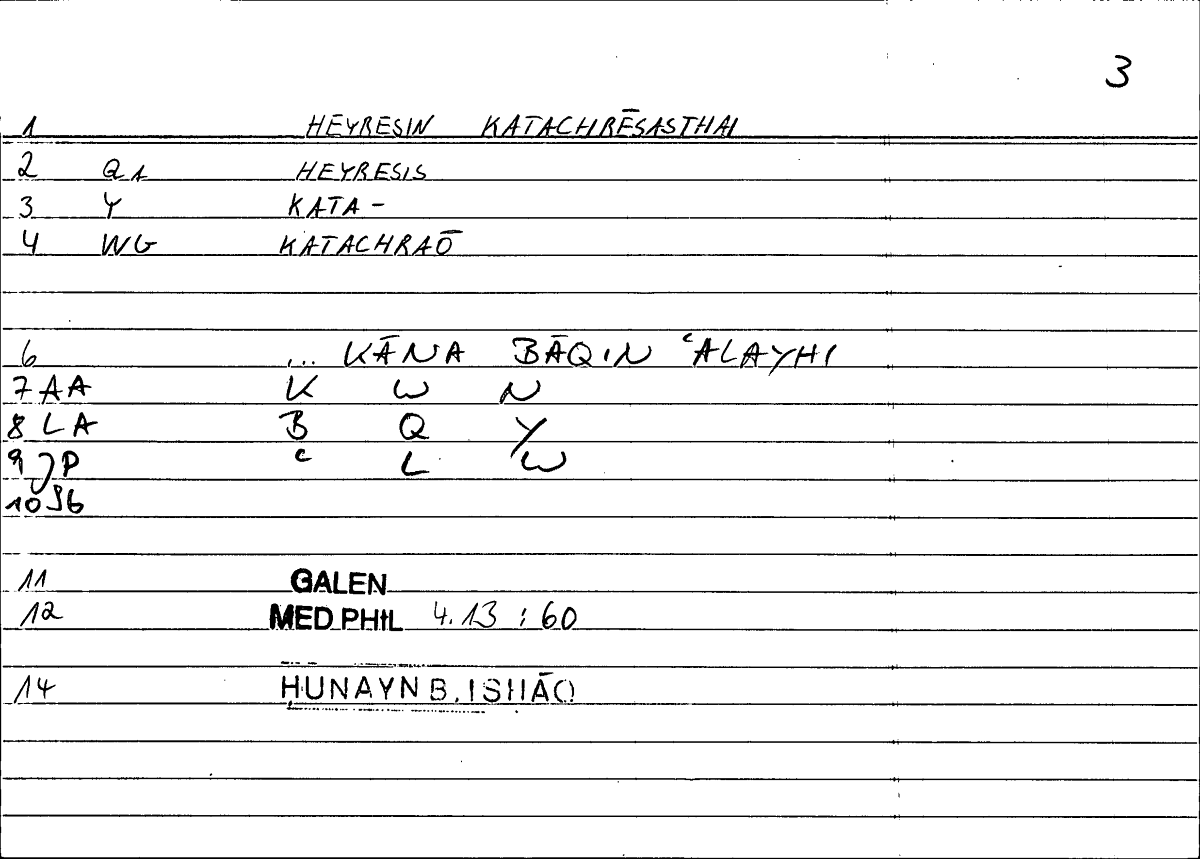 3
1 HEYRESIN KATACHRĒSASTHAI
2 Q1 HEYRESIS
3 Y KATA-
4 WG KATACHRAŌ
6 ... KĀNA BĀQIN ʿALAYHI
7 AA K W N
8 LA B Q Y
9 JP ʿ L W
10 36
11 GALEN
12 MED PHIL 4.13 : 60
14 ḤUNAYN B. ISḤĀQ